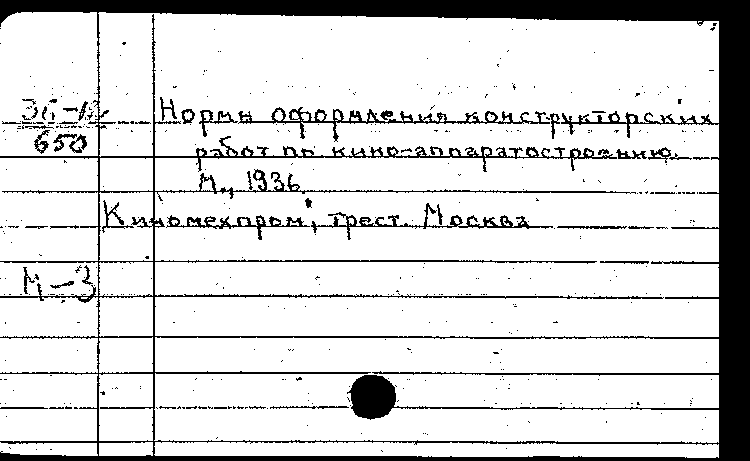 Нормы оформления конструкторских
650
работ по кино-аппаратостроению.
М., 1936.
Киномехпром", трест. Москва
М-3